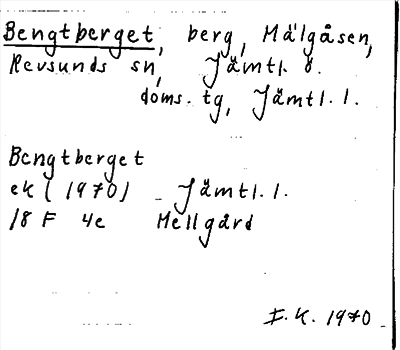 Bengtberget, berg, Mälgåsen,
Revsunds sn, Jämtl. ö.
doms. tg, Jämtl. l.
Bengtberget
ek (1970) Jämtl. l.
18 F 4e Mellgård
I.K. 1970